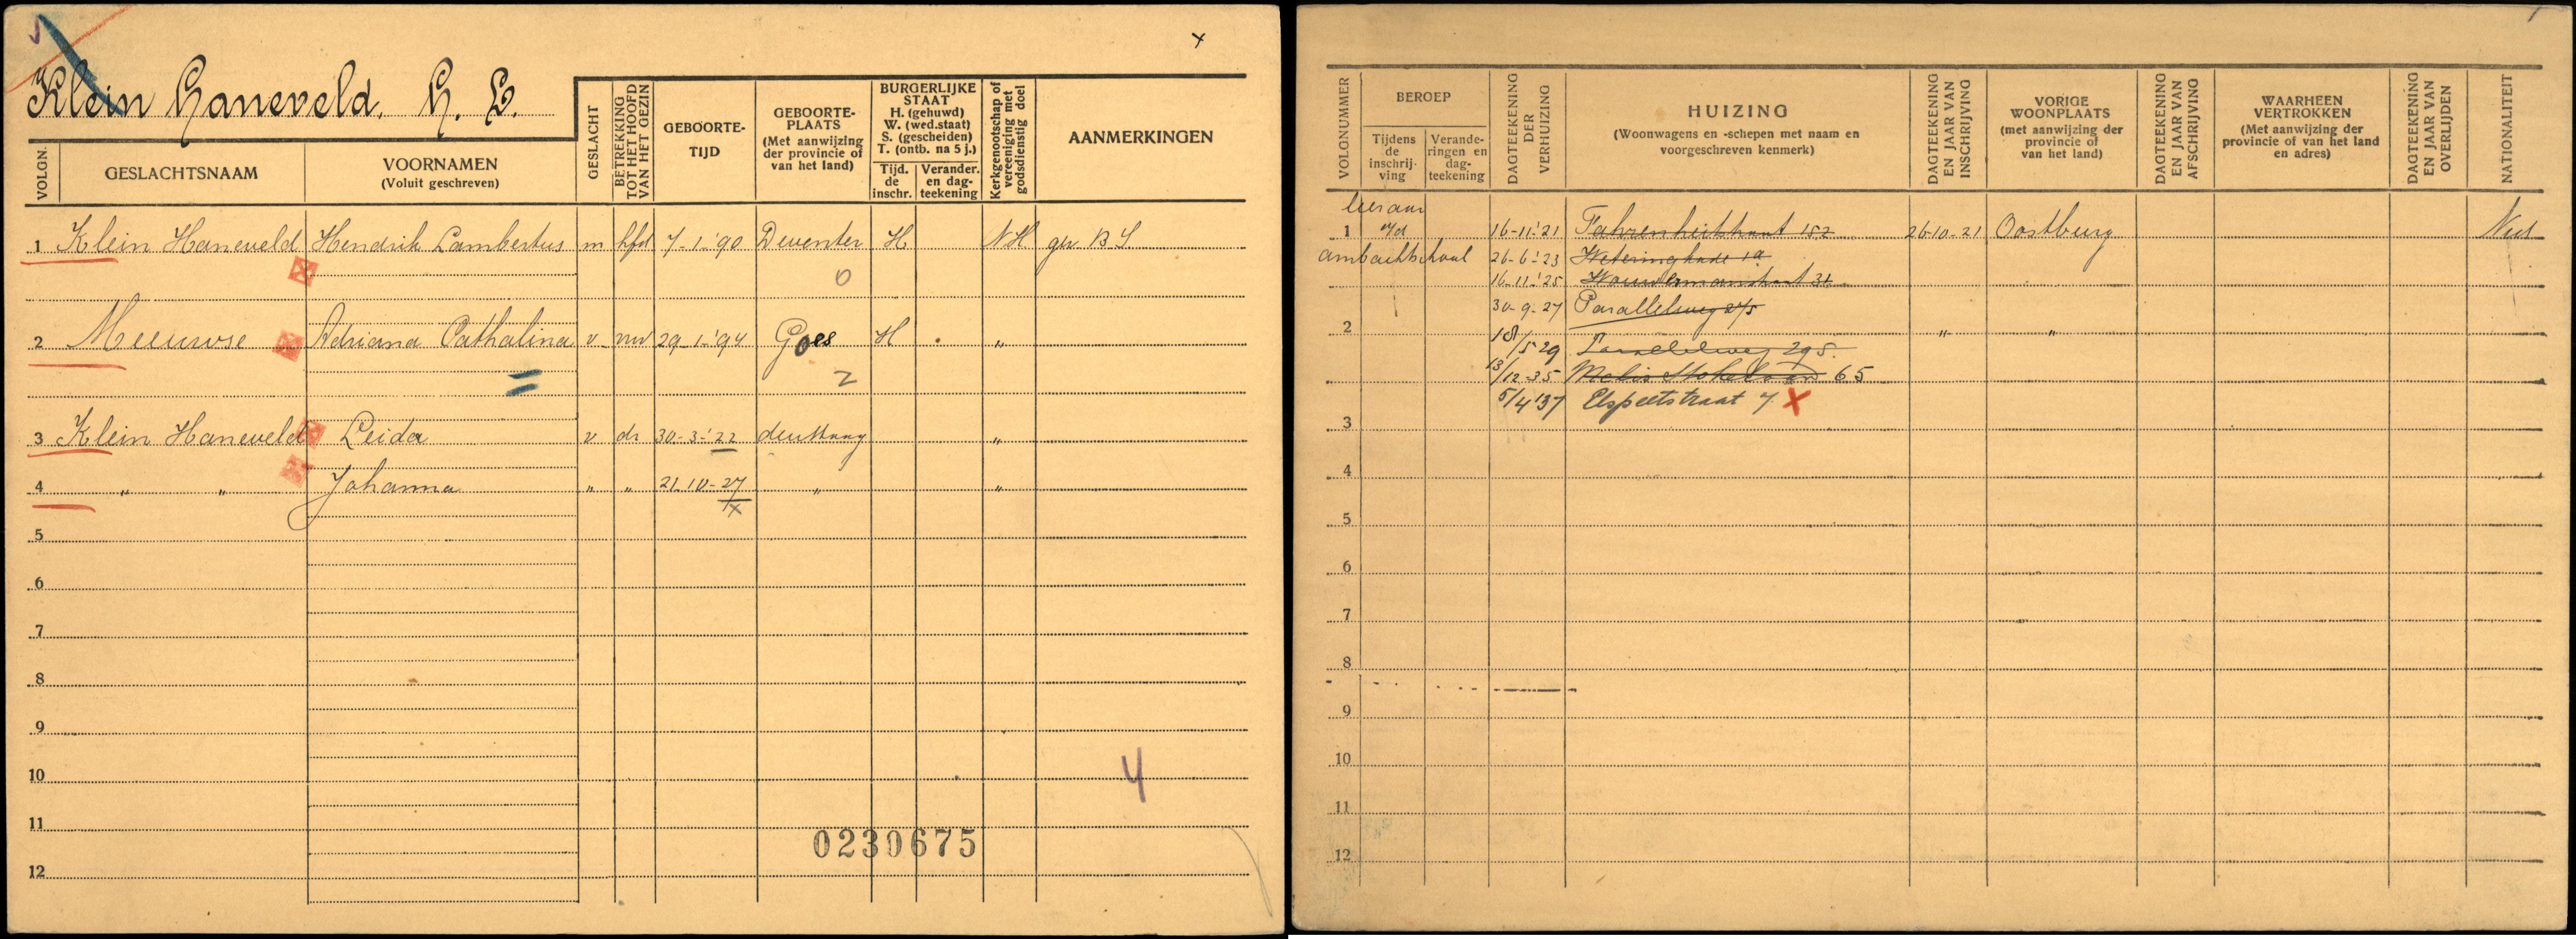 Klein Haneveld. H. L.
VOLGN.
GESLACHTSNAAM
VOORNAMEN
(Voluit geschreven)
GESLACHT
BETREKKING
TOT HET HOOFD
VAN HET GEZIN
GEBOORTE-
TIJD
GEBOORTE-
PLAATS
(Met aanwijzing
der provincie of
van het land)
BURGERLIJKE
STAAT
H. (gehuwd)
W. (wed.staat)
S. (gescheiden)
T. (ontb. na 5 j.)
Tijd.
de
inschr.
Verander.
en dag-
teekening
Kerkgenootschap of
vereeniging met
godsdienstig doel
AANMERKINGEN
1 Klein Haneveld Hendrik Lambertus m hfd 7-1-'90 Deventer H NH
0
2 Meeuwse Adriana Cathalina v vrw 29-1-'94 Goes H "
2
3 Klein Haneveld Leida v dr 30-3-'22 den Haag "
4 " " Johanna " " 21-10-27 " "
5
6
7
8
9
10
11
12
4
0230675
VOLGNUMMER
BEROEP
Tijdens
de
inschrij-
ving
Verande-
ringen en
dag-
teekening
DAGTEEKENING
DER
VERHUIZING
HUIZING
(Woonwagens en -schepen met naam en
voorgeschreven kenmerk)
DAGTEEKENING
EN JAAR VAN
INSCHRIJVING
VORIGE
WOONPLAATS
(met aanwijzing der
provincie of
van het land)
DAGTEEKENING
EN JAAR VAN
AFSCHRIJVING
WAARHEEN
VERTROKKEN
(Met aanwijzing der
provincie of van het land
en adres)
DAGTEEKENING
EN JAAR VAN
OVERLIJDEN
NATIONALITEIT
leeraar
1 a/d 16-11-'21 Fahrenheitstraat 152 26-10-21 Oostburg Ned
ambachtschool 26-6-'23 Weteringkade 1a
16-11-'25 Wouwermanstraat 31
30-9-27 Parallelweg
2 " "
18/5 29 Parallelweg 295
13/12-35 Melis Stokelaan 65
5/4 '37 Elspeetstraat 7
3
4
5
6
7
8
9
10
11
12